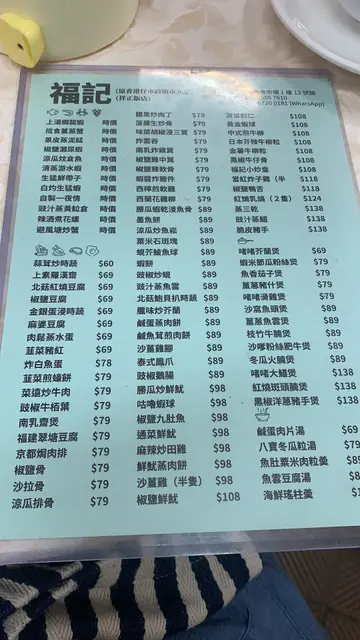 福記
(原香港仔市政街市九記)
(祥正飯店)
(WhatsApp)
上湯焗龍蝦 時價
抵食薑蔥蟹 時價
果皮蒸泥鯭 時價
椒鹽瀨尿蝦 時價
涼瓜炆倉魚 時價
清蒸游水蝦 時價
生猛鮮帶子 時價
白灼生猛蝦 時價
自製一夜情 時價
豉汁蒸黃粒倉 時價
辣酒煮花螺 時價
避風塘炒蟹 時價
蒜茸炒時蔬 $60
上素羅漢齋 $69
北菇紅燒豆腐 $69
椒鹽豆腐 $69
金銀蛋浸時蔬 $69
麻婆豆腐 $69
肉鬆蒸水蛋 $69
韮菜豬紅 $69
炸白魚蛋 $78
韮菜煎蠔餅 $79
菜遠炒牛肉 $79
豉椒牛栢葉 $79
南乳齋煲 $79
福建翠塘豆腐 $79
京都焗肉排 $79
椒鹽骨 $79
沙拉骨 $79
涼瓜排骨 $79
糖果炒肉丁 $79
菠蘿生炒骨 $79
味菜胡椒浸三寶 $79
炸雲吞 $79
南乳炸雞翼 $79
椒鹽雞中翼 $79
椒鹽雞軟骨 $79
蝦醬炸雞件 $79
西檸煎軟雞 $79
西蘭花雞柳 $79
勝瓜蝦乾浸魚骨 $89
墨魚餅 $89
涼瓜炒魚崧 $89
粟米石斑塊 $89
蜆芥鯪魚球 $89
蝦餅 $89
豉椒炒蜆 $89
豉汁蒸魚雲 $89
北菇鮑貝扒時蔬 $89
臘味炒芥蘭 $89
鹹蛋蒸肉餅 $89
鹹魚茸煎肉餅 $89
沙薑雞腳 $89
泰式鳳爪 $89
豉椒鵝腸 $89
勝瓜炒鮮魷 $98
咕嚕蝦球 $98
椒鹽九肚魚 $98
通菜鮮魷 $98
麻辣炒田雞 $98
鮮魷蒸肉餅 $98
沙薑雞（半隻） $98
椒鹽鮮魷 $108
菠蘿蝦仁 $108
黃金蝦球 $108
中式煎牛柳 $108
日本芥辣牛柳粒 $108
金薯牛柳粒 $108
黑椒牛仔骨 $108
福記小炒皇 $108
當紅炸子雞（半 $118
椒鹽鴨舌 $118
紅燒乳鴿（２隻） $124
蒸三乾 $138
豉汁蒸鱔 $138
脆皮豬手 $138
啫啫芥蘭煲 $69
蝦米節瓜粉絲煲 $79
魚香茄子煲 $79
薑蔥豬什煲 $79
啫啫滑雞煲 $79
沙窩魚頭煲 $89
薑蔥魚雲煲 $89
枝竹牛腩煲 $89
沙嗲粉絲肥牛煲 $89
冬瓜火腩煲 $89
啫啫大鱔煲 $138
紅燒斑頭腩煲 $138
黑椒洋蔥豬手煲 $138
鹹蛋肉片湯 $69
八寶冬瓜粒湯 $79
魚肚粟米肉粒羹
魚雲豆腐湯
海鮮瑤柱羹